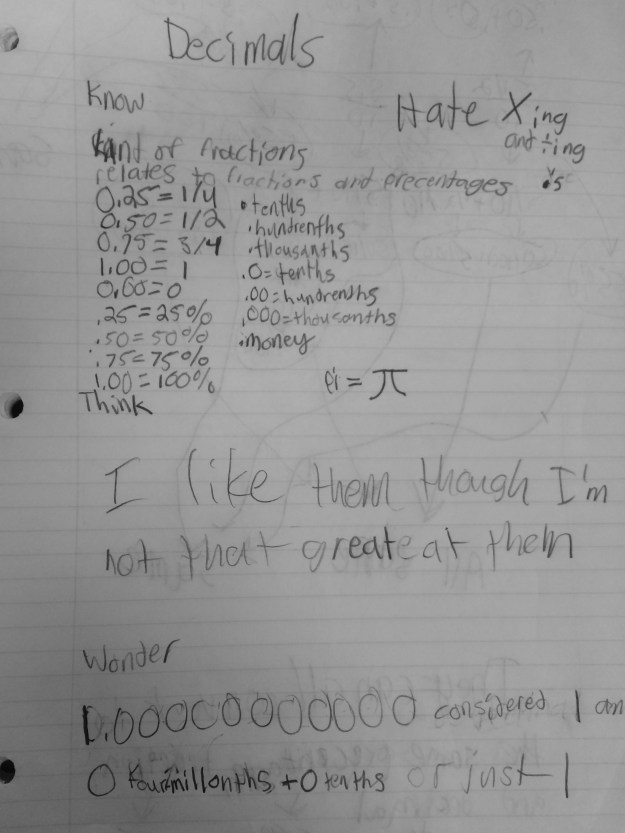 Decimals
Know
Hate Xing
and ÷ing
.'s
kind of fractions
relates to fractions and precentages
0.25 = 1/4
0.50 = 1/2
0.75 = 3/4
1.00 = 1
0.00 = 0
.25 = 25%
.50 = 50%
.75 = 75%
1.00 = 100%
• tenths
. hundrenths
. thousanths
.0 = tenths
.00 = hundrenths
.000 = thousanths
. money
Pi = π
Think
I like them though I'm
not that greate at them
Wonder
1.00000000000 considered 1 an
0 millonths + 0 tenths or just 1